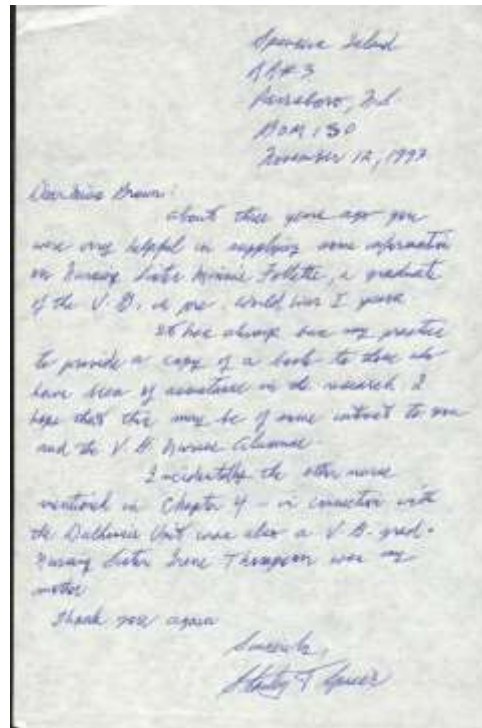 Spencers Island
RR#3
Parrsboro, N.S.
B0M 1S0
November 12, 1997
Dear Miss Brown:
About three years ago you
were very helpful in supplying some information
on Nursing Sister Minnie Follette, a graduate
of the V.G. in pre. World War I years
It has always been my practice
to provide a copy of a book to those who
have been of assistance in the research. I
hope that this may be of some interest to you
and the V.G. Nurses Alumnae
Incidentally the other nurse
mentioned in Chapter 4 - in connection with
the Dalhousie Unit was also a V.G. grad.
Nursing Sister Irene Thompson was my
mother
Thank you again
Sincerely,
Stanley T Spicer